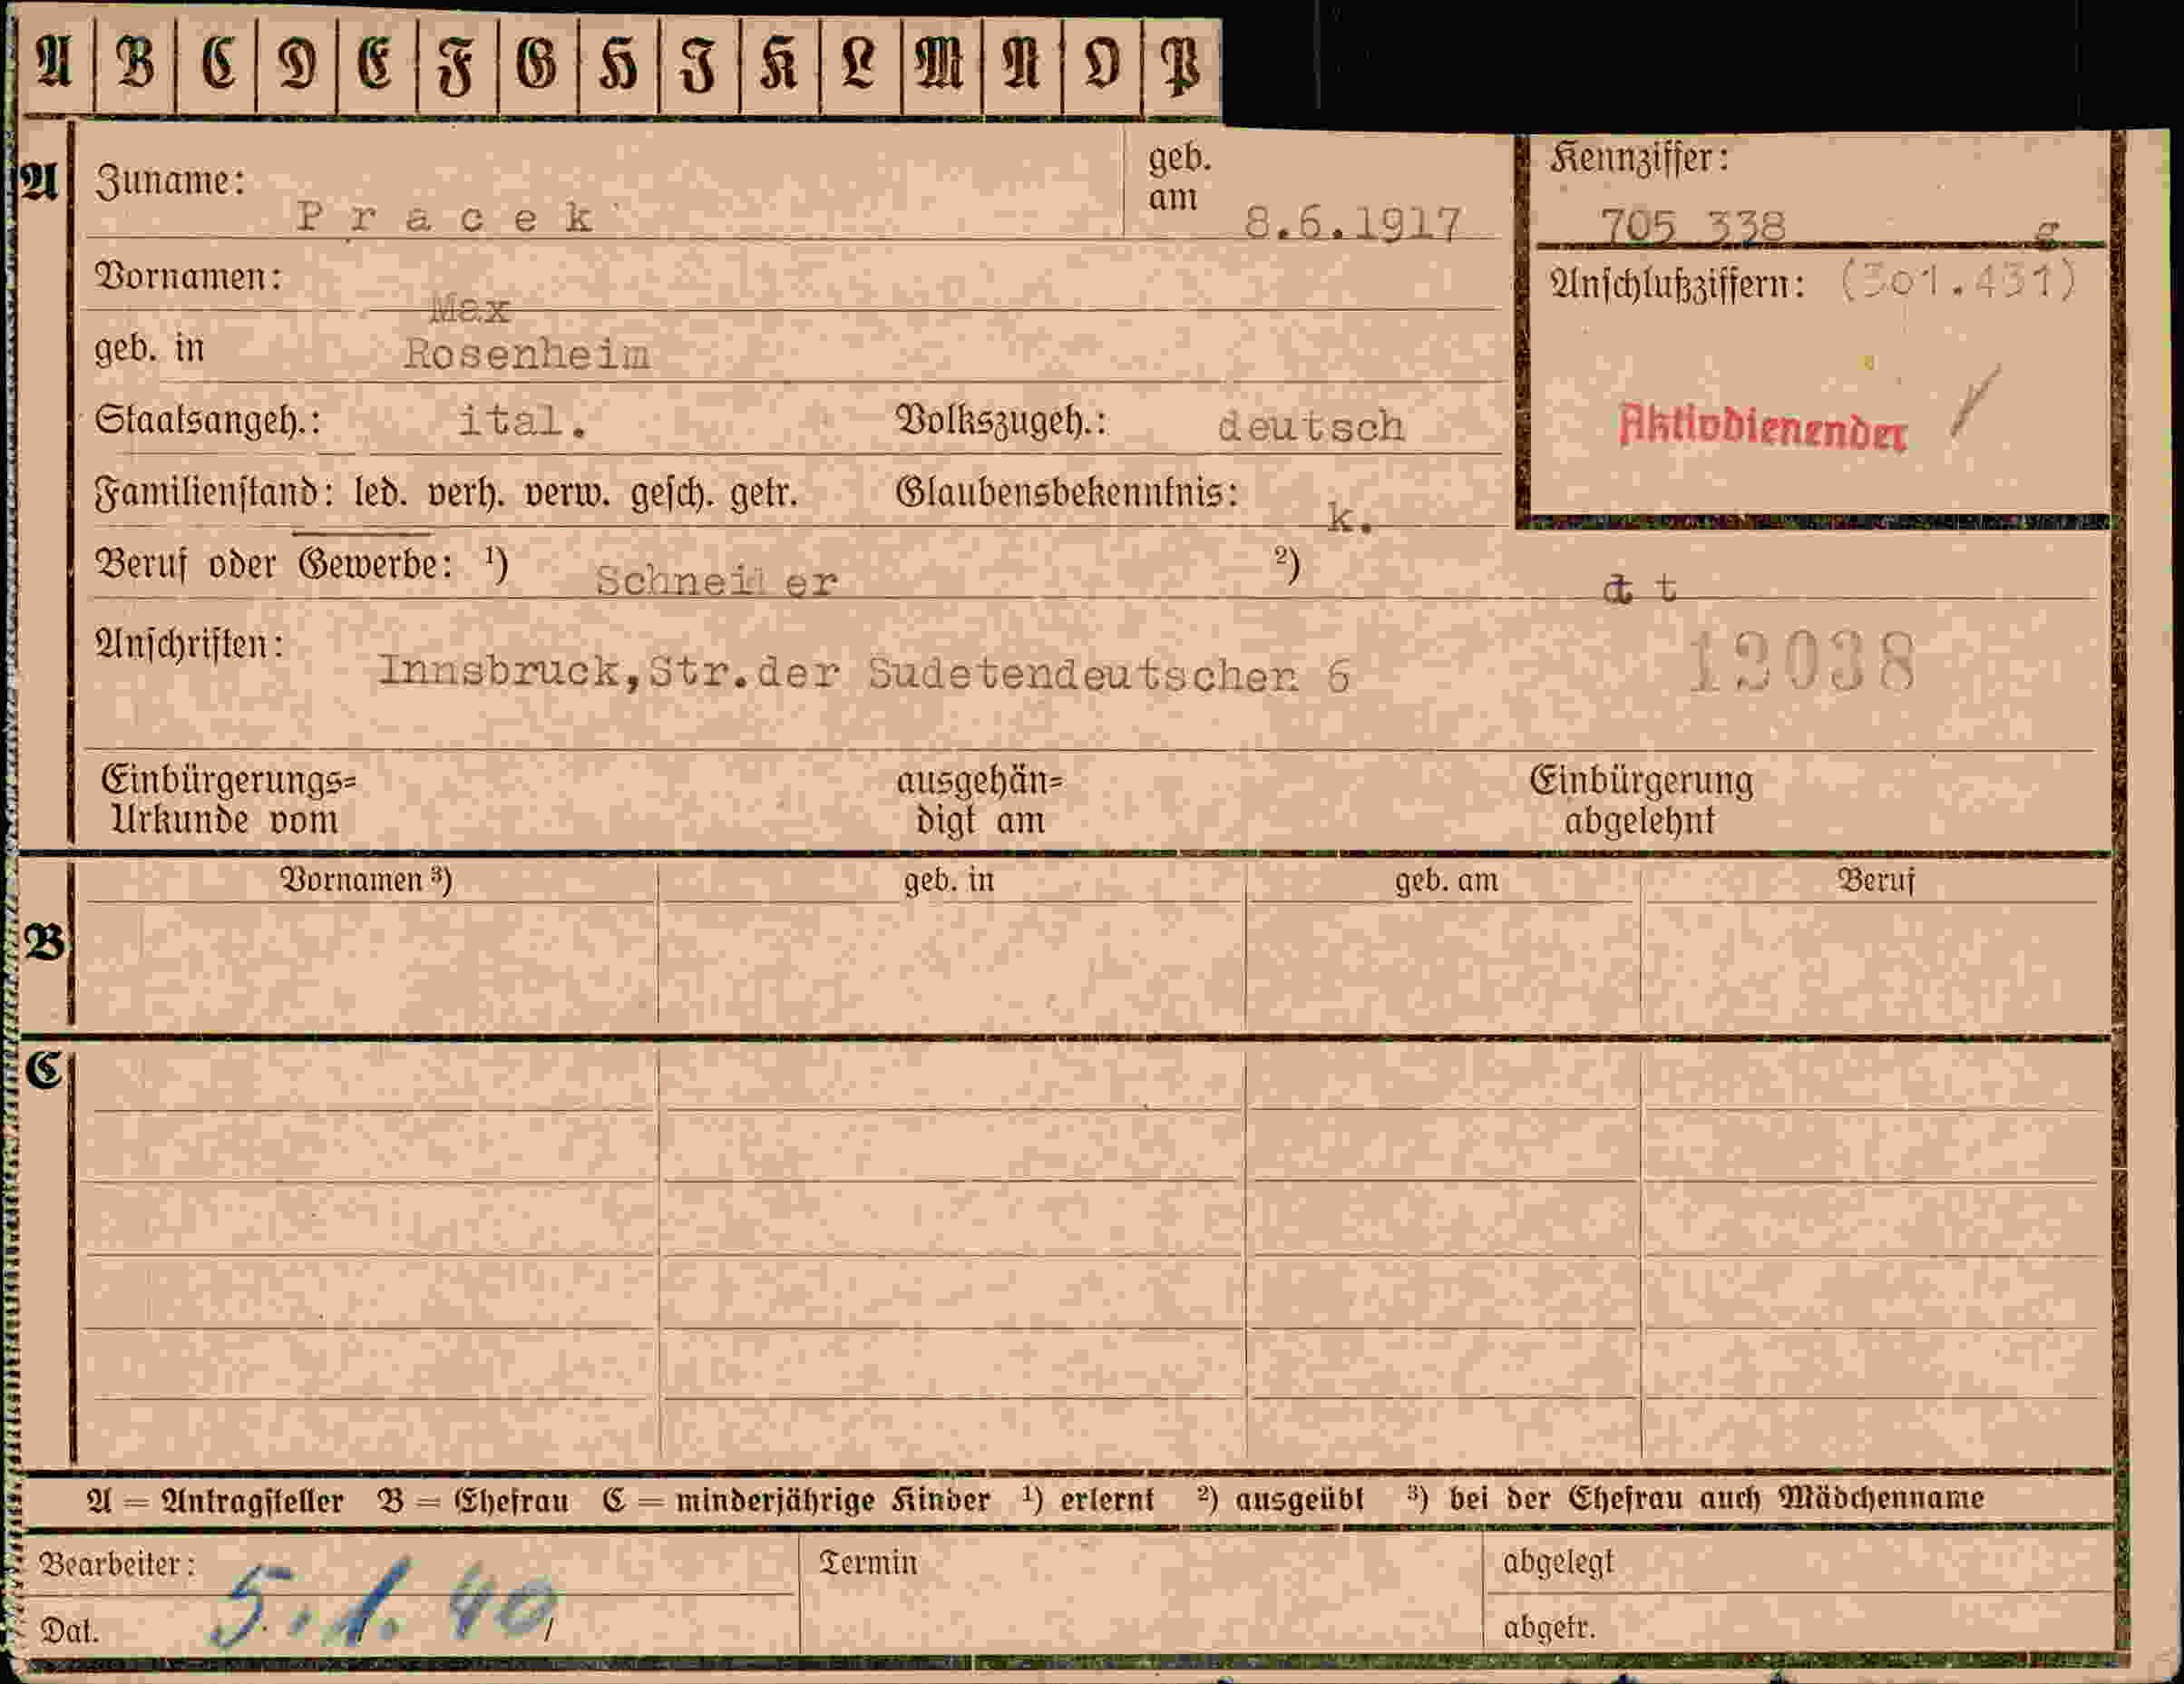 A B C D E F G H I K L M N O P
A Zuname: Pracek geb. am 8.6.1917
Kennziffer: 705 338 g
Vornamen: Max
Anschlußziffern: (301.431)
geb. in Rosenheim
Aktivdienender
Staatsangeh.: ital. Volkszugeh.: deutsch
Familienstand: led. verh. verw. gesch. getr. Glaubensbekenntnis: k.
Beruf oder Gewerbe: ¹) Schneider ²)
Anschriften: Innsbruck,Str.der Sudetendeutschen 6
Einbürgerungs= Urkunde vom
ausgehän= digt am
Einbürgerung abgelehnt
B Vornamen ³) geb. in geb. am Beruf
C
A = Antragsteller B = Ehefrau C = minderjährige Kinder ¹) erlernt ²) ausgeübt ³) bei der Ehefrau auch Mädchenname
Bearbeiter: Termin abgelegt
Dat. 5.1.40 abgetr.